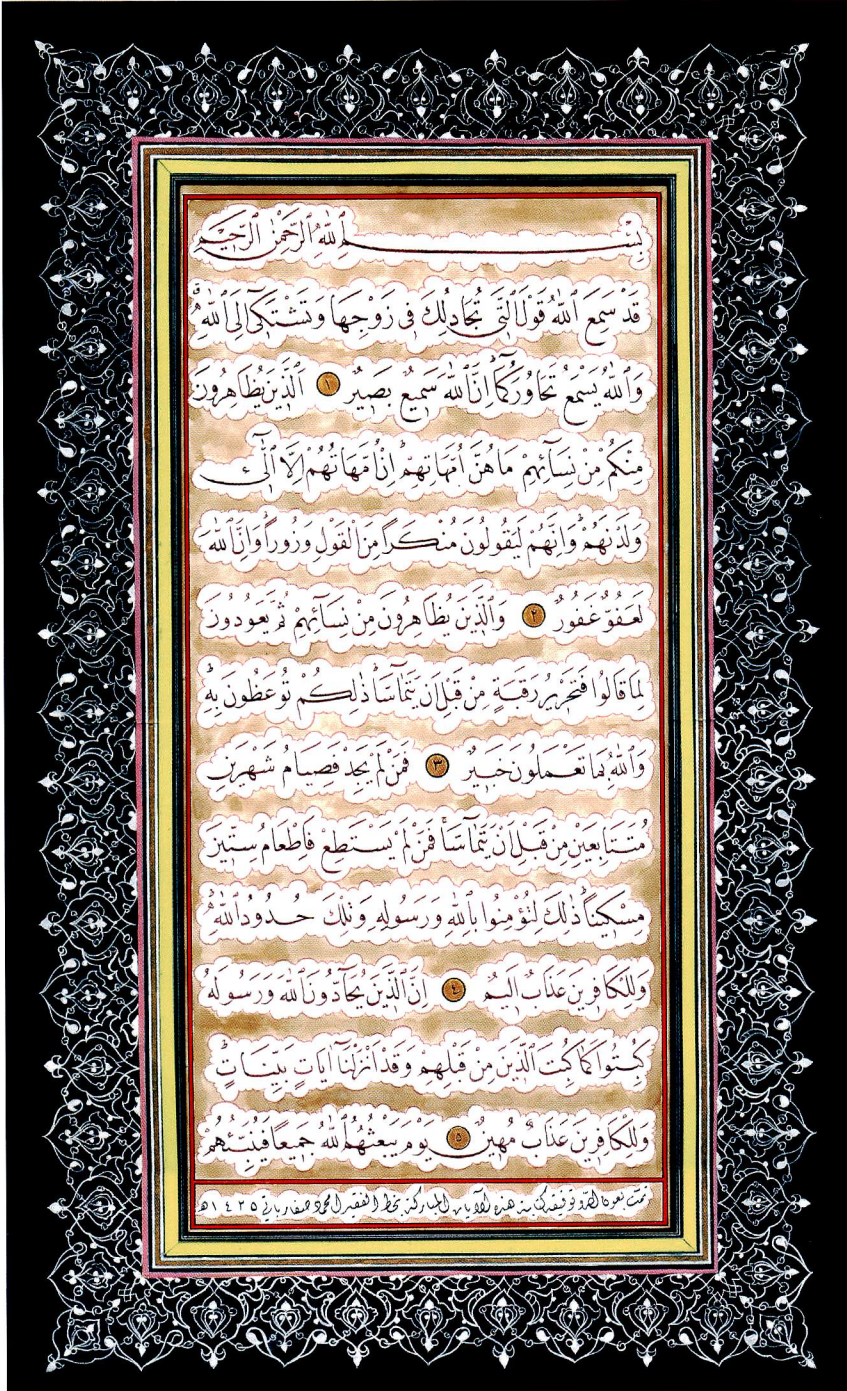 بِسْمِ اللّٰهِ الرَّحْمٰنِ الرَّحِيمِ
قَدْ سَمِعَ اللّٰهُ قَوْلَ الَّتِي تُجَادِلُكَ فِي زَوْجِهَا وَتَشْتَكِٓي اِلَى اللّٰهِ
وَاللّٰهُ يَسْمَعُ تَحَاوُرَكُمَا اِنَّ اللّٰهَ سَمِيعٌ بَصِيرٌ ١ اَلَّذِينَ يُظَاهِرُونَ
مِنْكُمْ مِنْ نِسَٓائِهِمْ مَا هُنَّ اُمَّهَاتِهِمْ اِنْ اُمَّهَاتُهُمْ اِلَّا الّٰٓـِٔي
وَلَدْنَهُمْ وَاِنَّهُمْ لَيَقُولُونَ مُنْكَرًا مِنَ الْقَوْلِ وَزُورًا وَاِنَّ اللّٰهَ
لَعَفُوٌّ غَفُورٌ ٢ وَالَّذِينَ يُظَاهِرُونَ مِنْ نِسَٓائِهِمْ ثُمَّ يَعُودُونَ
لِمَا قَالُوا فَتَحْرِيرُ رَقَبَةٍ مِنْ قَبْلِ اَنْ يَتَمَٓاسَّا ذٰلِكُمْ تُوعَظُونَ بِهِ
وَاللّٰهُ بِمَا تَعْمَلُونَ خَبِيرٌ ٣ فَمَنْ لَمْ يَجِدْ فَصِيَامُ شَهْرَيْنِ
مُتَتَابِعَيْنِ مِنْ قَبْلِ اَنْ يَتَمَٓاسَّا فَمَنْ لَمْ يَسْتَطِعْ فَاِطْعَامُ سِتِّينَ
مِسْكِينًا ذٰلِكَ لِتُؤْمِنُوا بِاللّٰهِ وَرَسُولِهِ وَتِلْكَ حُدُودُ اللّٰهِ
وَلِلْكَافِرِينَ عَذَابٌ اَلِيمٌ ٤ اِنَّ الَّذِينَ يُحَٓادُّونَ اللّٰهَ وَرَسُولَهُ
كُبِتُوا كَمَا كُبِتَ الَّذِينَ مِنْ قَبْلِهِمْ وَقَدْ اَنْزَلْنَٓا اٰيَاتٍ بَيِّنَاتٍ
وَلِلْكَافِرِينَ عَذَابٌ مُهِينٌ ٥ يَوْمَ يَبْعَثُهُمُ اللّٰهُ جَمِيعًا فَيُنَبِّئُهُمْ
تمت بعون الله وتوفيقه كتابة هذه الآيات المباركة بخط الفقير محمد صفار باتي ١٤٢٥هـ